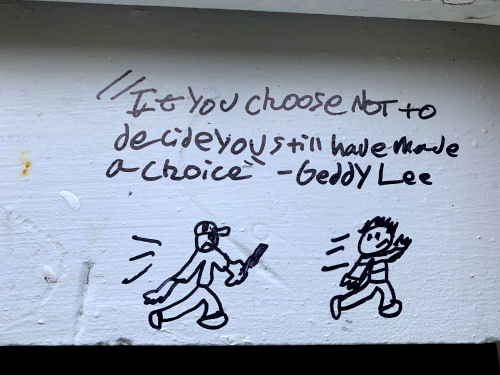 "If you choose NOT to
decide you still have made
a choice" -Geddy Lee